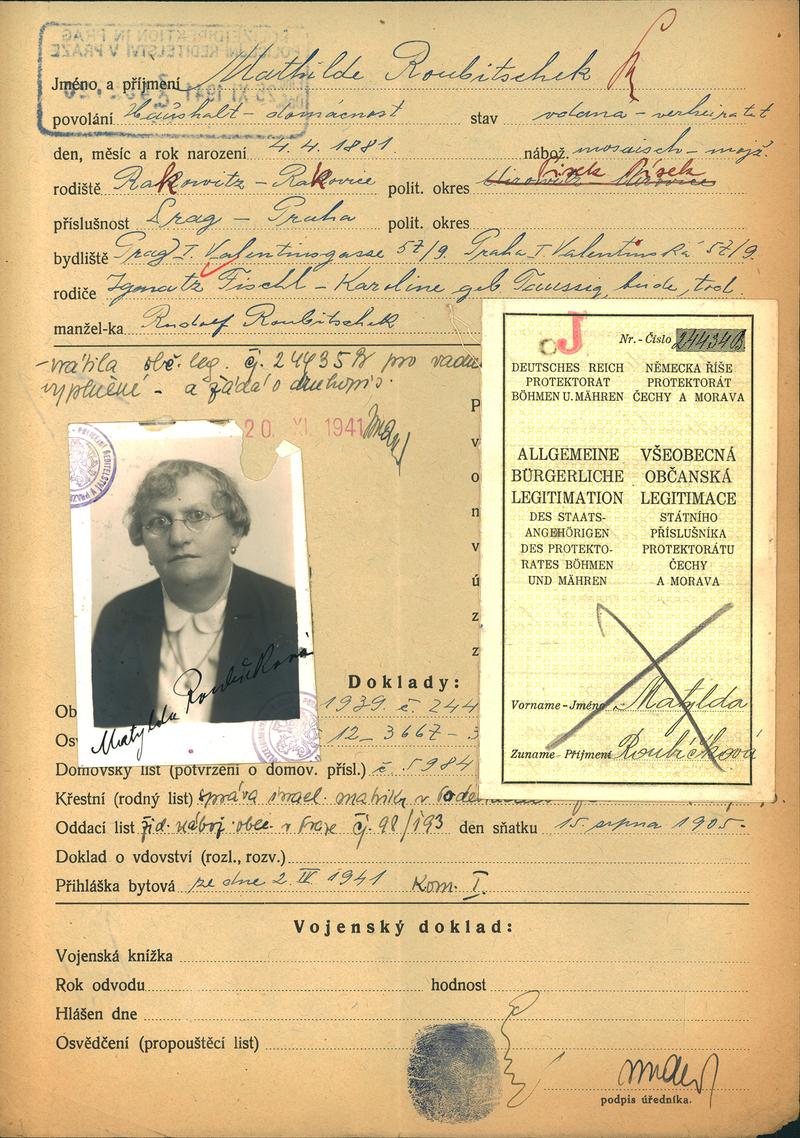 Jméno a příjmení Mathilde Roubitschek
povolání Haushalt - domácnost stav vdaná - verheiratet
den, měsíc a rok narození 4.4.1881. nábož. mosaisch - mojž.
rodiště Rakowitz - Rakovice polit. okres Písek Písek
příslušnost Prag - Praha polit. okres
bydliště Prag I. Valentinsgasse 57/9. Praha I. Valentinská 57/9.
rodiče Ignatz Fischl - Karoline geb Taussig, beide tod.
manžel-ka Rudolf Roubitschek
- vrátila obč. leg. čj. 24435B pro vadně
vyplnění - a žádá o druhopis.
20. XI. 1941
Matylda Roubíčková
J
Nr. - Číslo 244340B.
DEUTSCHES REICH
PROTEKTORAT
BÖHMEN U. MÄHREN
NĚMECKÁ ŘÍŠE
PROTEKTORÁT
ČECHY A MORAVA
ALLGEMEINE
BÜRGERLICHE
LEGITIMATION
DES STAATS-
ANGEHÖRIGEN
DES PROTEKTO-
RATES BÖHMEN
UND MÄHREN
VŠEOBECNÁ
OBČANSKÁ
LEGITIMACE
STÁTNÍHO
PŘÍSLUŠNÍKA
PROTEKTORÁTU
ČECHY
A MORAVA
Vorname - Jméno Matylda
Zuname - Příjmení Roubíčková
Doklady:
Ob 1939 č. 244
Osv 12_3667-3
Domovský list (potvrzení o domov. přísl.) č. 5984
Křestní (rodný list) správa israel. matriky v
Oddací list žid. nábož. obec v Praze čj. 98/193 den sňatku 15. srpna 1905.
Doklad o vdovství (rozl., rozv.)
Přihláška bytová ze dne 2. IV. 1941 Kom. I.
Vojenský doklad:
Vojenská knížka
Rok odvodu hodnost
Hlášen dne
Osvědčení (propouštěcí list)
podpis úředníka.